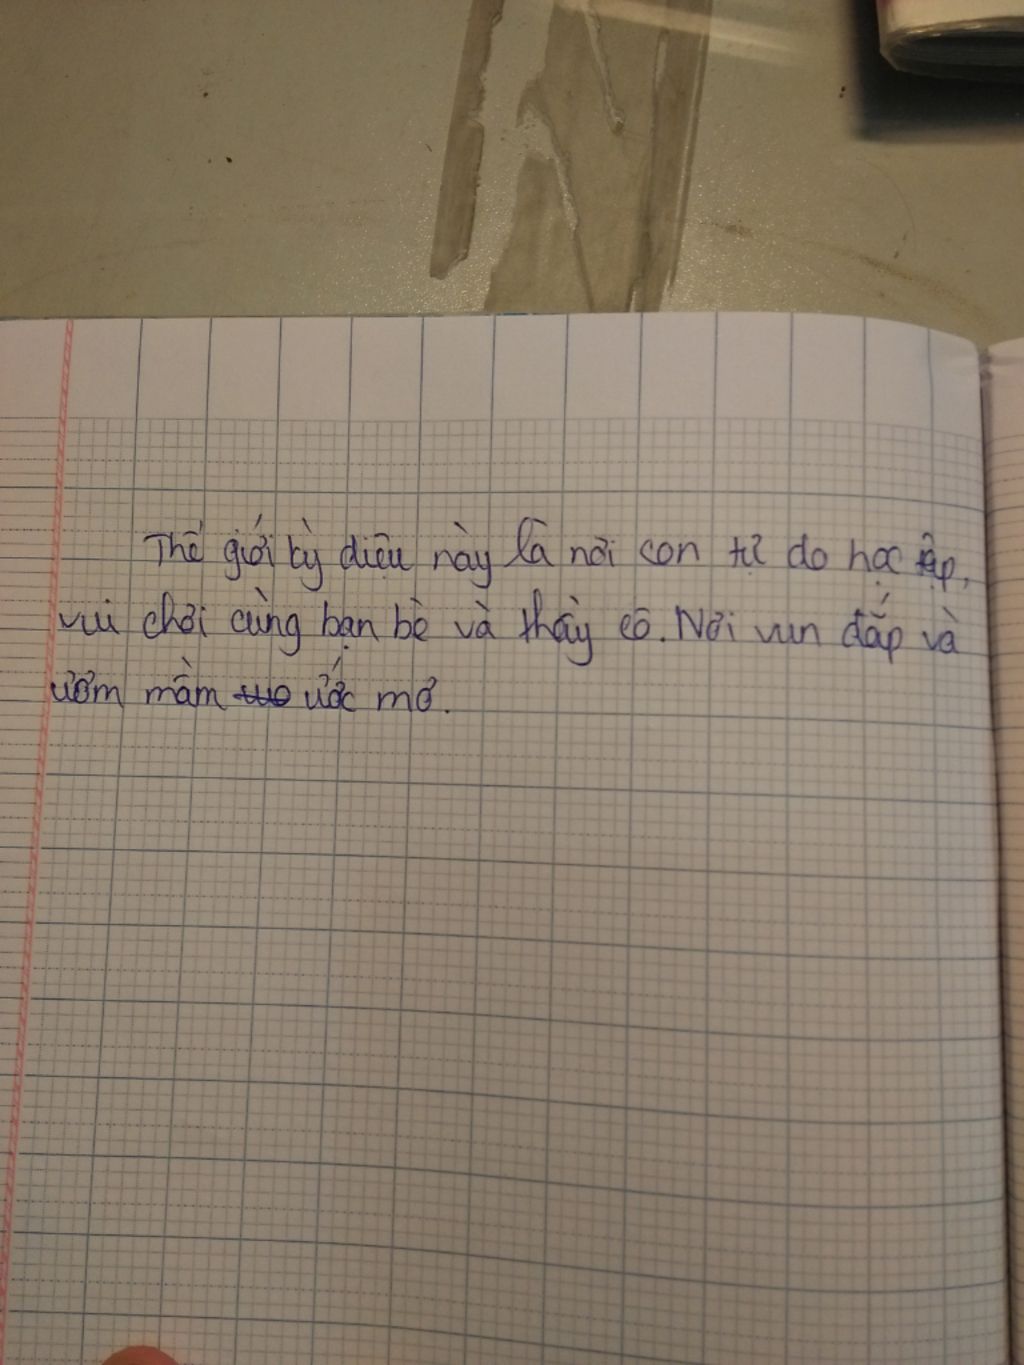 Thế giới kỳ diệu này là nơi con tự do học tập,
vui chơi cùng bạn bè và thầy cô. Nơi vun đắp và
ươm mầm ước mơ.